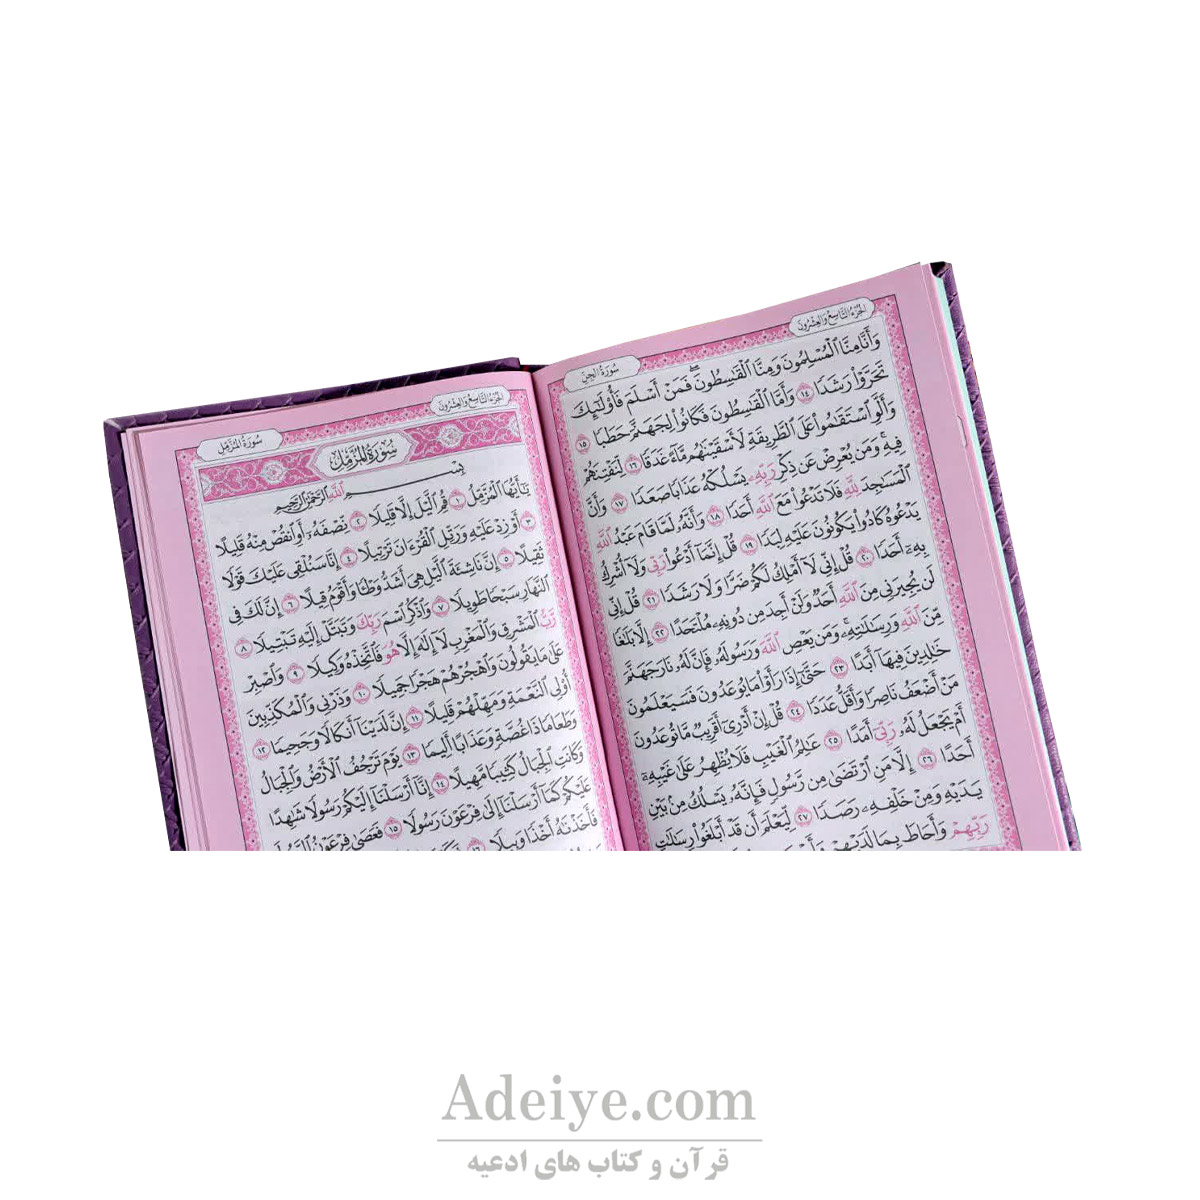 الجُزءُ التَّاسِعُ وَالعِشرُونَ
سُورَةُ الجِنِّ
وَأَنَّا مِنَّا ٱلْمُسْلِمُونَ وَمِنَّا ٱلْقَٰسِطُونَ ۖ فَمَنْ أَسْلَمَ فَأُو۟لَٰٓئِكَ
تَحَرَّوْا۟ رَشَدًا ١٤ وَأَمَّا ٱلْقَٰسِطُونَ فَكَانُوا۟ لِجَهَنَّمَ حَطَبًا ١٥
وَأَلَّوِ ٱسْتَقَٰمُوا۟ عَلَى ٱلطَّرِيقَةِ لَأَسْقَيْنَٰهُم مَّآءً غَدَقًا ١٦ لِّنَفْتِنَهُمْ
فِيهِ ۚ وَمَن يُعْرِضْ عَن ذِكْرِ رَبِّهِۦ يَسْلُكْهُ عَذَابًا صَعَدًا ١٧ وَأَنَّ
ٱلْمَسَٰجِدَ لِلَّهِ فَلَا تَدْعُوا۟ مَعَ ٱللَّهِ أَحَدًا ١٨ وَأَنَّهُۥ لَمَّا قَامَ عَبْدُ ٱللَّهِ
يَدْعُوهُ كَادُوا۟ يَكُونُونَ عَلَيْهِ لِبَدًا ١٩ قُلْ إِنَّمَآ أَدْعُوا۟ رَبِّى وَلَآ أُشْرِكُ
بِهِۦٓ أَحَدًا ٢٠ قُلْ إِنِّى لَآ أَمْلِكُ لَكُمْ ضَرًّا وَلَا رَشَدًا ٢١ قُلْ إِنِّى
لَن يُجِيرَنِى مِنَ ٱللَّهِ أَحَدٌ وَلَنْ أَجِدَ مِن دُونِهِۦ مُلْتَحَدًا ٢٢ إِلَّا بَلَٰغًا
مِّنَ ٱللَّهِ وَرِسَٰلَٰتِهِۦ ۚ وَمَن يَعْصِ ٱللَّهَ وَرَسُولَهُۥ فَإِنَّ لَهُۥ نَارَ جَهَنَّمَ
خَٰلِدِينَ فِيهَآ أَبَدًا ٢٣ حَتَّىٰٓ إِذَا رَأَوْا۟ مَا يُوعَدُونَ فَسَيَعْلَمُونَ
مَنْ أَضْعَفُ نَاصِرًا وَأَقَلُّ عَدَدًا ٢٤ قُلْ إِنْ أَدْرِىٓ أَقَرِيبٌ مَّا تُوعَدُونَ
أَمْ يَجْعَلُ لَهُۥ رَبِّىٓ أَمَدًا ٢٥ عَٰلِمُ ٱلْغَيْبِ فَلَا يُظْهِرُ عَلَىٰ غَيْبِهِۦٓ
أَحَدًا ٢٦ إِلَّا مَنِ ٱرْتَضَىٰ مِن رَّسُولٍ فَإِنَّهُۥ يَسْلُكُ مِنۢ بَيْنِ
يَدَيْهِ وَمِنْ خَلْفِهِۦ رَصَدًا ٢٧ لِّيَعْلَمَ أَن قَدْ أَبْلَغُوا۟ رِسَٰلَٰتِ
رَبِّهِمْ وَأَحَاطَ بِمَا لَدَيْهِمْ
الجُزءُ التَّاسِعُ وَالعِشرُونَ
سُورَةُ المُزَّمِّلِ
سُورَةُ المُزَّمِّلِ
بِسْمِ ٱللَّهِ ٱلرَّحْمَٰنِ ٱلرَّحِيمِ
يَٰٓأَيُّهَا ٱلْمُزَّمِّلُ ١ قُمِ ٱلَّيْلَ إِلَّا قَلِيلًا ٢ نِّصْفَهُۥٓ أَوِ ٱنقُصْ مِنْهُ قَلِيلًا
٣ أَوْ زِدْ عَلَيْهِ وَرَتِّلِ ٱلْقُرْءَانَ تَرْتِيلًا ٤ إِنَّا سَنُلْقِى عَلَيْكَ قَوْلًا
ثَقِيلًا ٥ إِنَّ نَاشِئَةَ ٱلَّيْلِ هِىَ أَشَدُّ وَطْـًٔا وَأَقْوَمُ قِيلًا ٦ إِنَّ لَكَ فِى
ٱلنَّهَارِ سَبْحًا طَوِيلًا ٧ وَٱذْكُرِ ٱسْمَ رَبِّكَ وَتَبَتَّلْ إِلَيْهِ تَبْتِيلًا ٨
رَّبُّ ٱلْمَشْرِقِ وَٱلْمَغْرِبِ لَآ إِلَٰهَ إِلَّا هُوَ فَٱتَّخِذْهُ وَكِيلًا ٩ وَٱصْبِرْ
عَلَىٰ مَا يَقُولُونَ وَٱهْجُرْهُمْ هَجْرًا جَمِيلًا ١٠ وَذَرْنِى وَٱلْمُكَذِّبِينَ
أُو۟لِى ٱلنَّعْمَةِ وَمَهِّلْهُمْ قَلِيلًا ١١ إِنَّ لَدَيْنَآ أَنكَالًا وَجَحِيمًا ١٢
وَطَعَامًا ذَا غُصَّةٍ وَعَذَابًا أَلِيمًا ١٣ يَوْمَ تَرْجُفُ ٱلْأَرْضُ وَٱلْجِبَالُ
وَكَانَتِ ٱلْجِبَالُ كَثِيبًا مَّهِيلًا ١٤ إِنَّآ أَرْسَلْنَآ إِلَيْكُمْ رَسُولًا شَٰهِدًا
عَلَيْكُمْ كَمَآ أَرْسَلْنَآ إِلَىٰ فِرْعَوْنَ رَسُولًا ١٥ فَعَصَىٰ فِرْعَوْنُ ٱلرَّسُولَ
فَأَخَذْنَٰهُ أَخْذًا وَبِيلًا ١٦
Adeiye.com
قرآن و کتاب های ادعیه